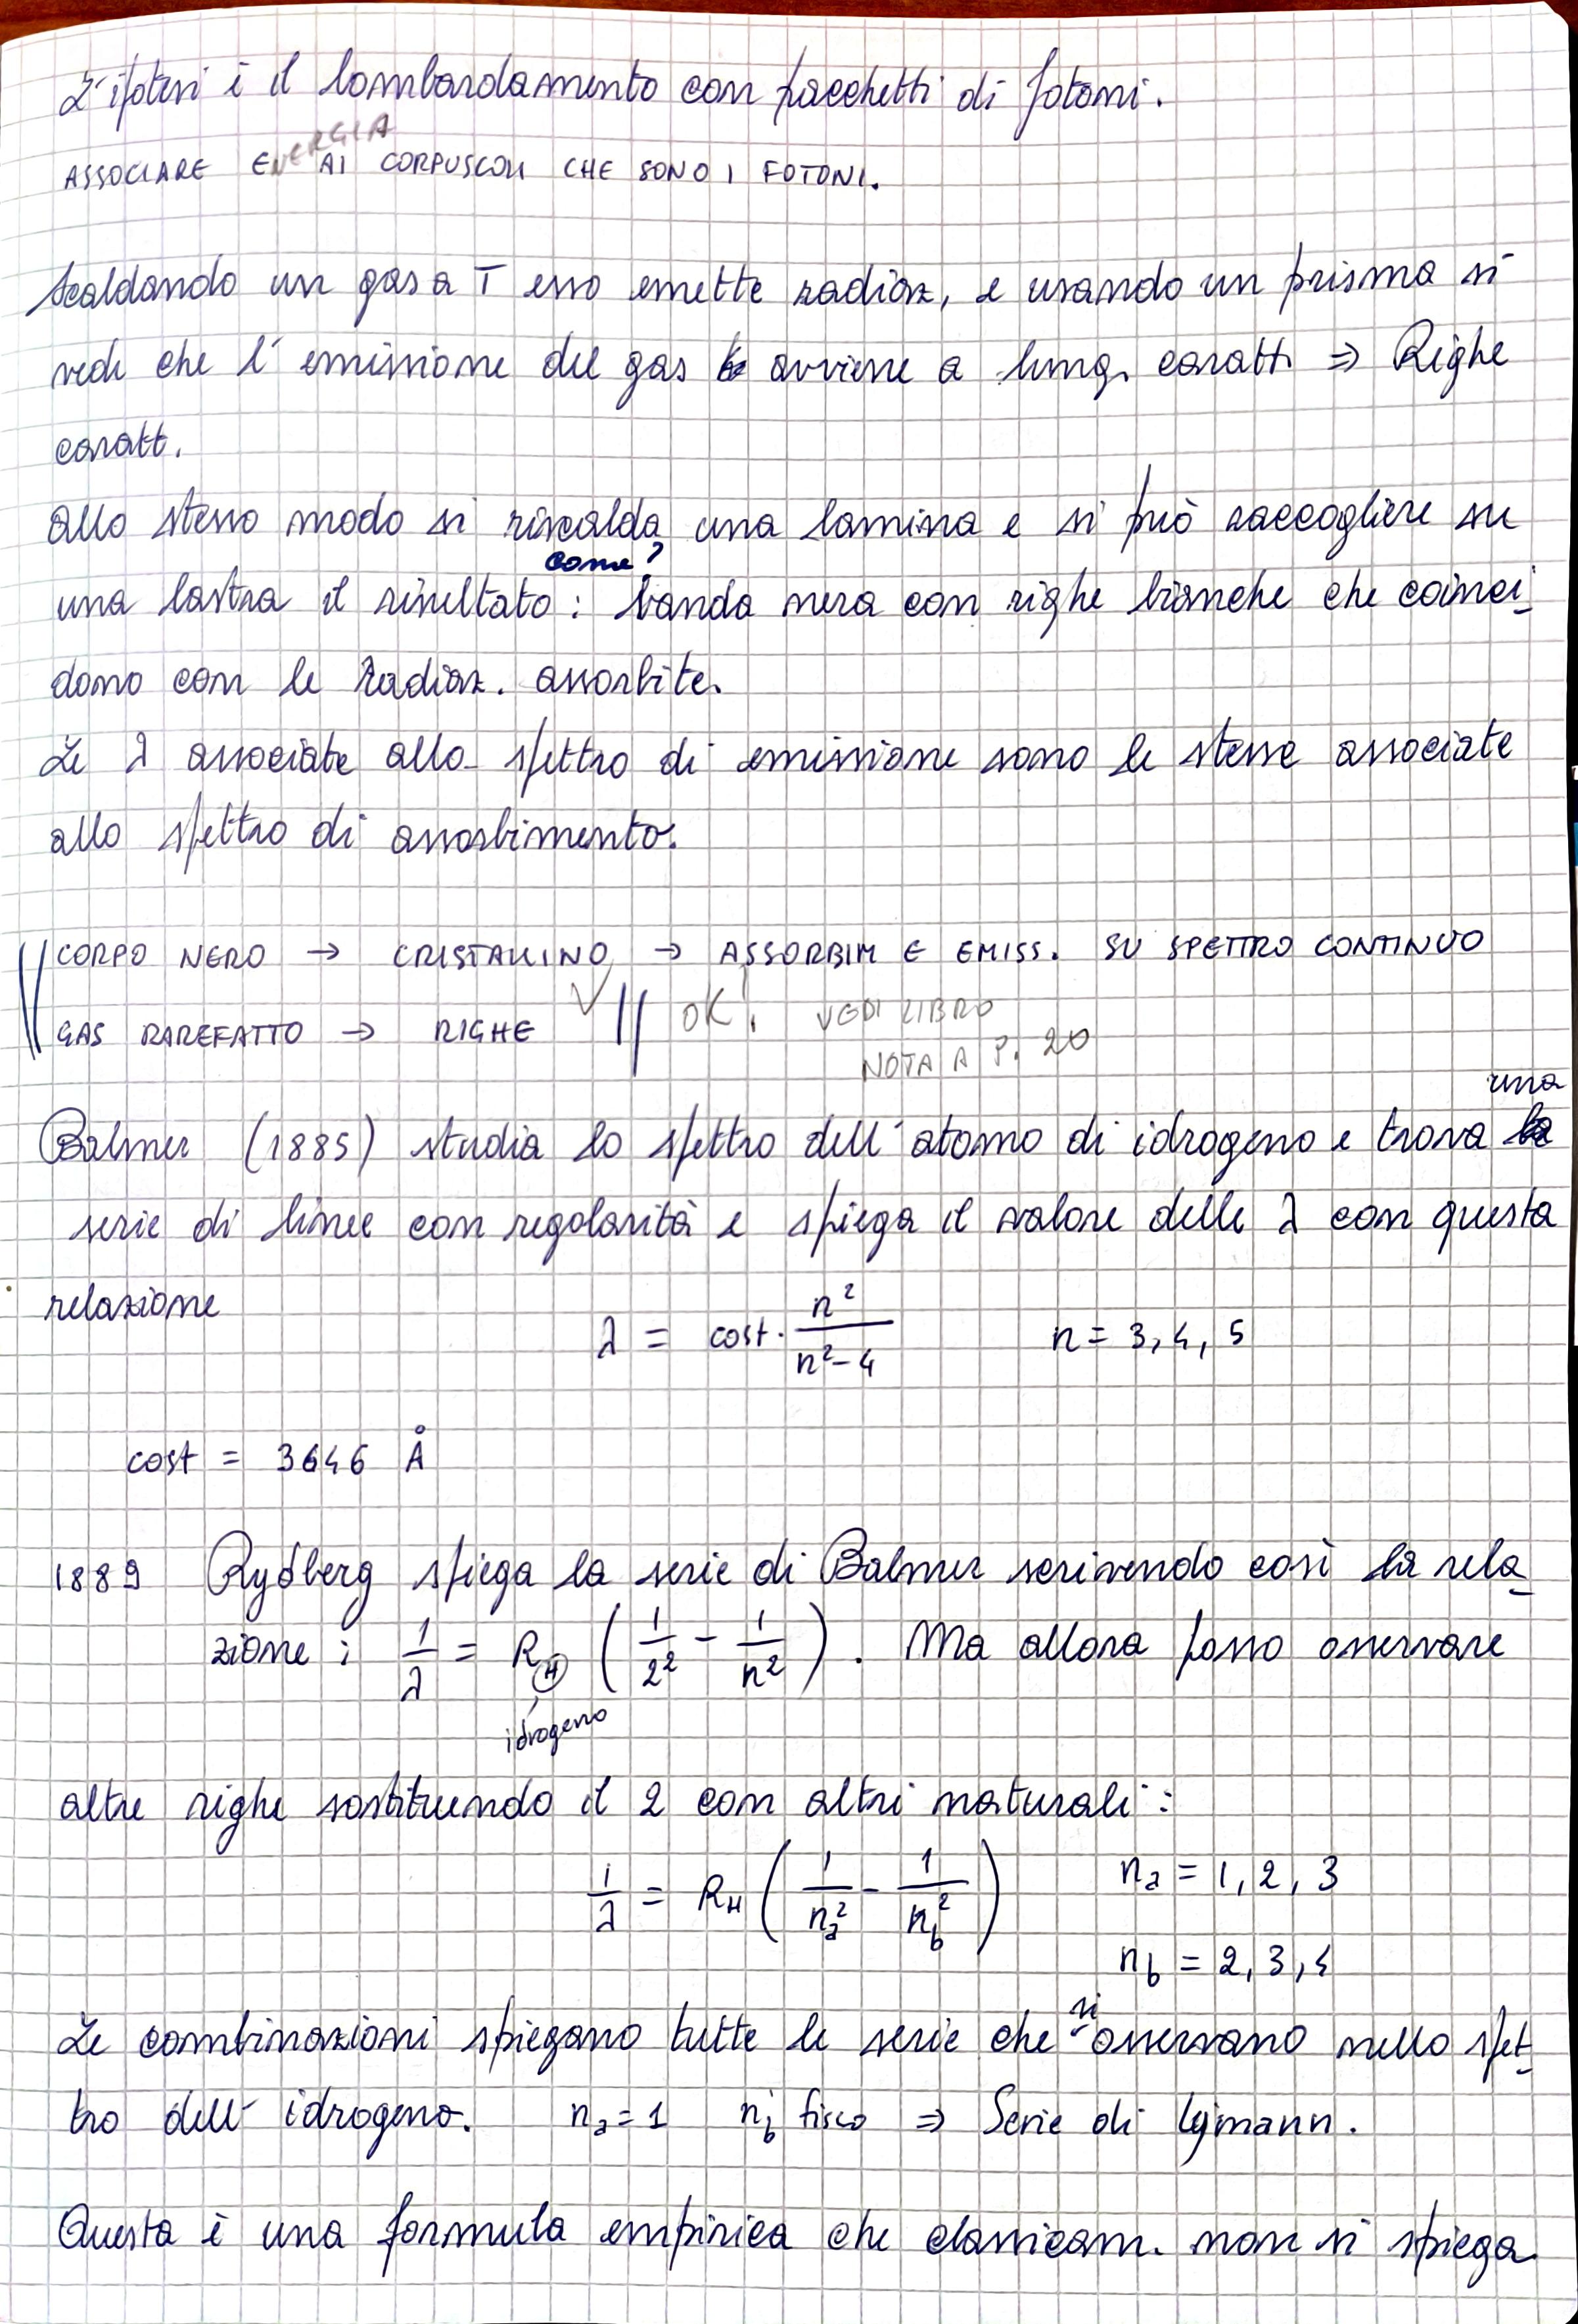 L'ipotesi è il bombardamento con pacchetti di fotoni.
ASSOCIARE ENERGIA AI CORPUSCOLI CHE SONO I FOTONI.
Scaldando un gas a T esso emette radiaz, e usando un prisma si
vede che l'emissione del gas avviene a lung. caratt. ⇒ Righe
caratt.
Allo stesso modo si riscalda una lamina e si può raccogliere su
come?
una lastra il risultato: banda nera con righe bianche che coinci-
dono con le radiaz. assorbite.
Le λ associate allo spettro di emissione sono le stesse associate
allo spettro di assorbimento.
CORPO NERO → CRISTALLINO → ASSORBIM E EMISS. SU SPETTRO CONTINUO
GAS RAREFATTO → RIGHE √ || OK! VEDI LIBRO
NOTA A P. 20
Balmer (1885) studia lo spettro dell'atomo di idrogeno e trova una
serie di linee con regolarità e spiega il valore delle λ con questa
relazione
λ = cost · n²/(n²-4) n = 3, 4, 5
cost = 3646 Å
1889 Rydberg spiega la serie di Balmer scrivendo così la rela-
zione: 1/λ = R_H (1/2² - 1/n²). Ma allora posso osservare
idrogeno
altre righe sostituendo il 2 con altri naturali:
1/λ = R_H (1/n_a² - 1/n_b²) n_a = 1, 2, 3
n_b = 2, 3, 4
Le combinazioni spiegano tutte le serie che si osservano nello spet-
tro dell'idrogeno. n_a = 1 n_b fisso ⇒ Serie di Lymann.
Questa è una formula empirica che classicam. non si spiega